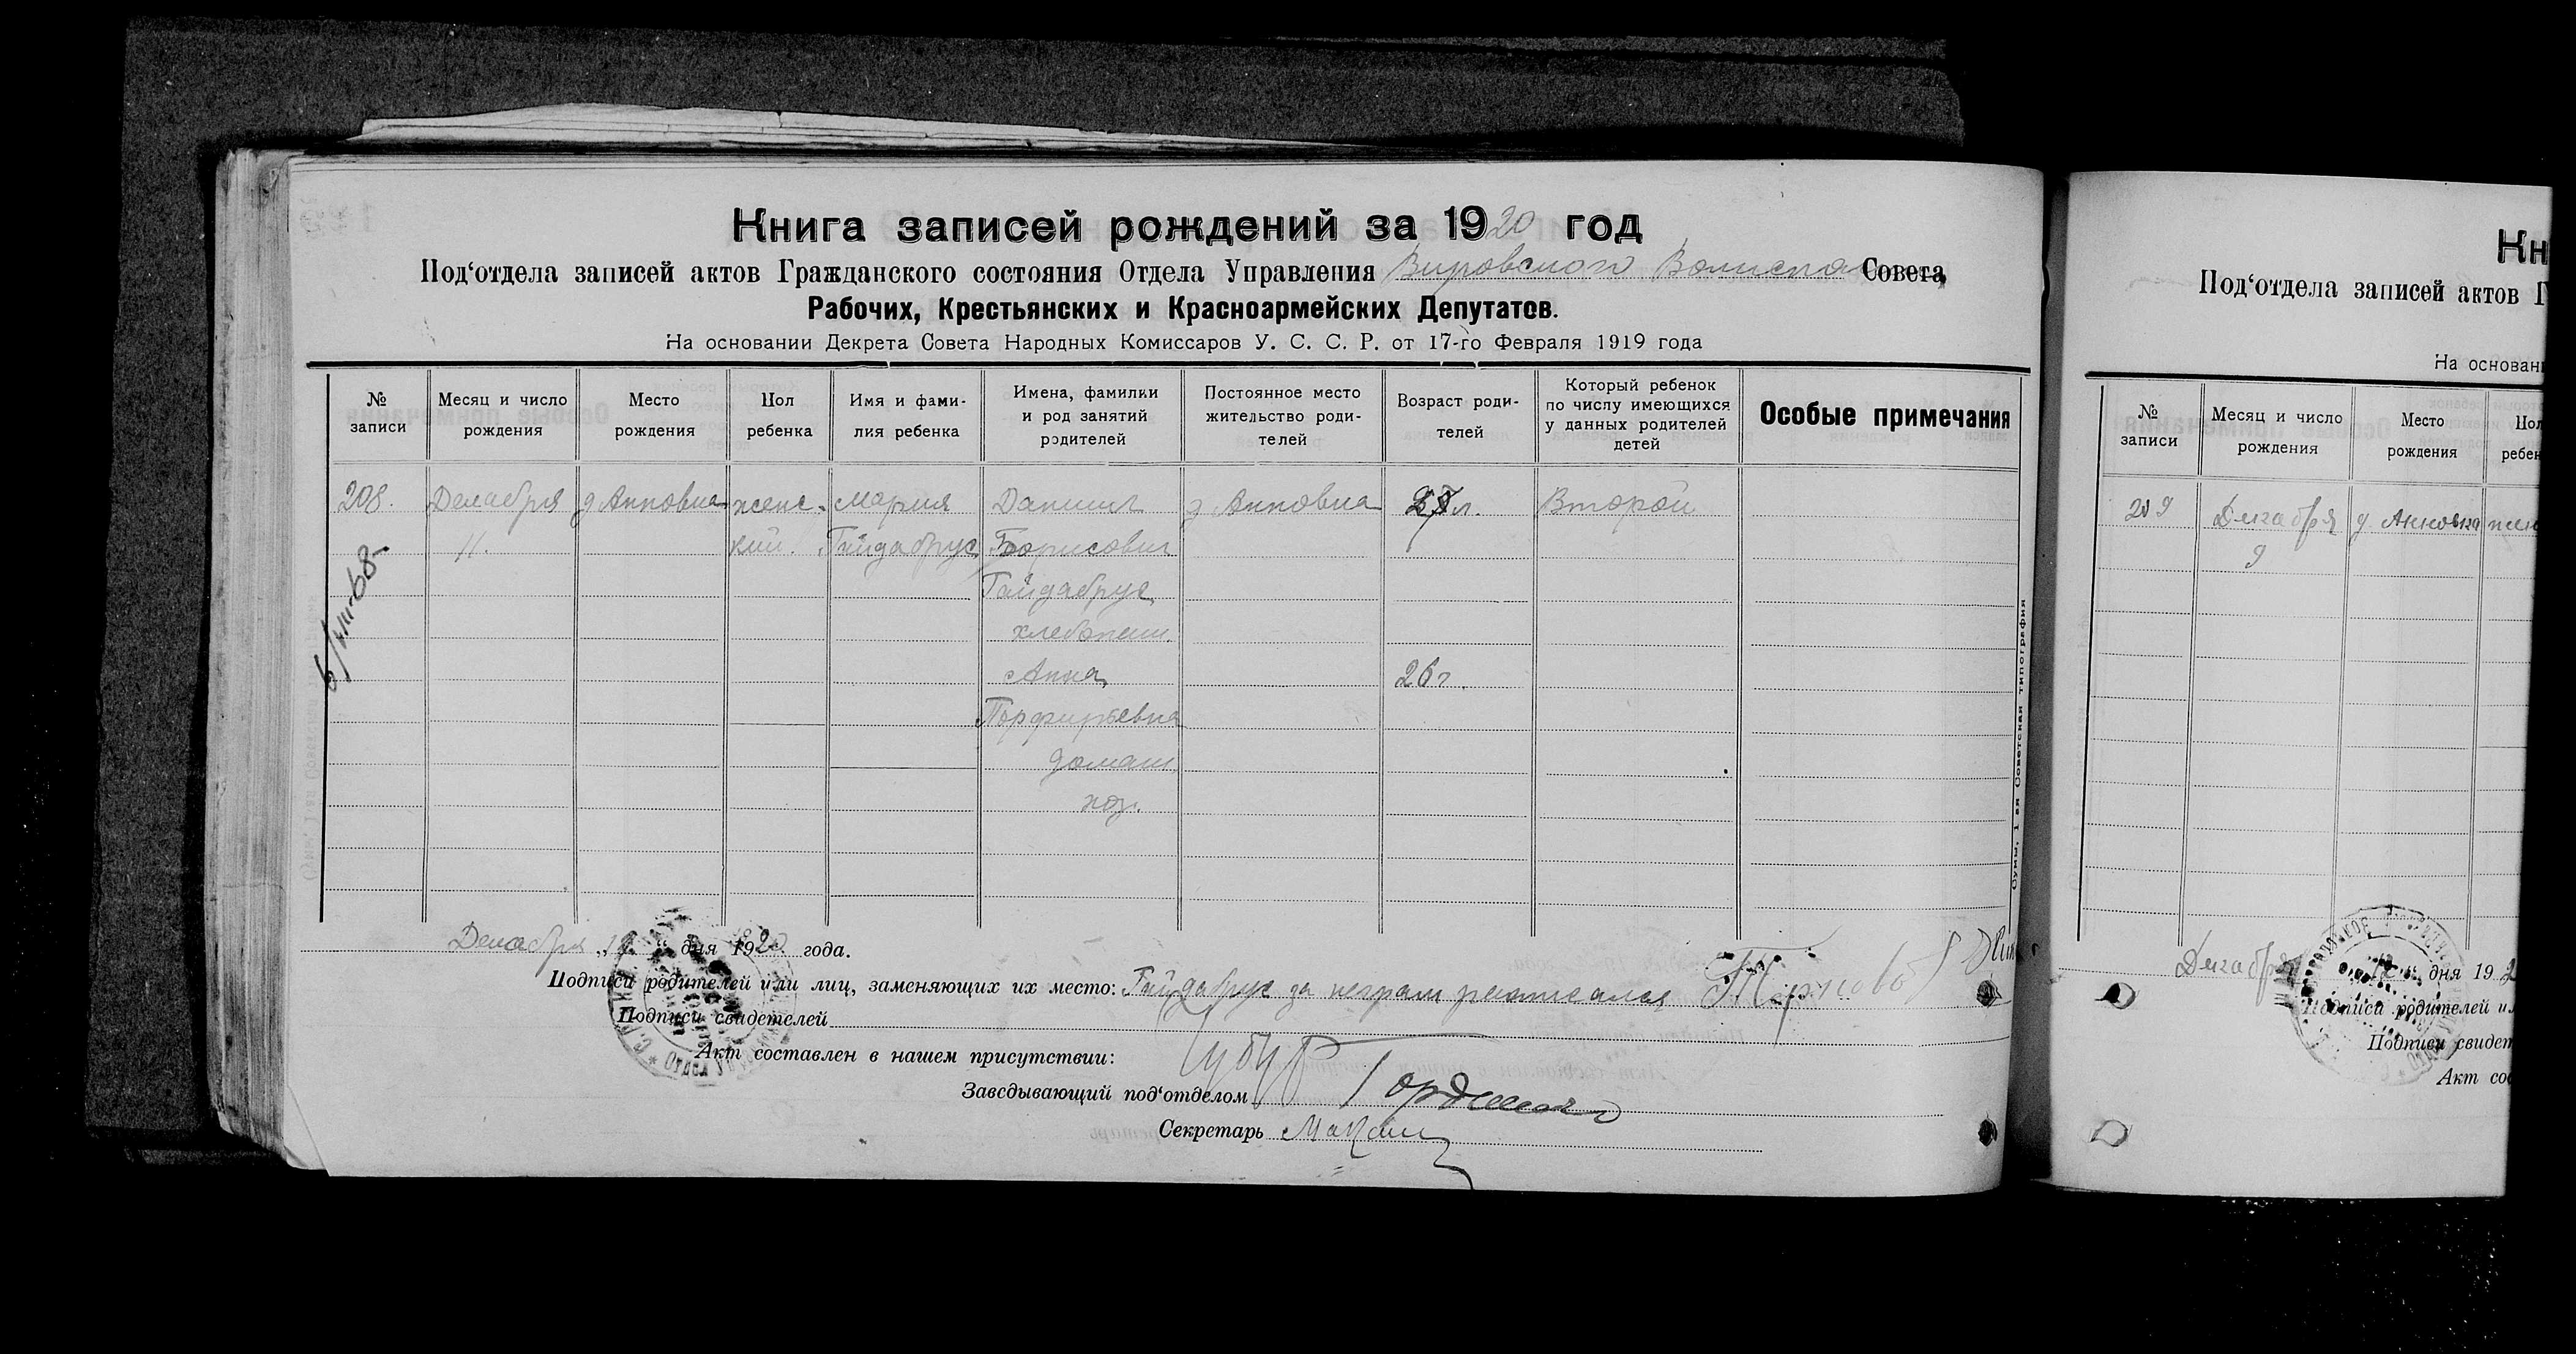 Книга записей рождений за 1920 год
Под‘отдела записей актов Гражданского состояния Отдела Управления Вировского Волиспол Совета,
Рабочих, Крестьянских и Красноармейских Депутатов.
На основании Декрета Совета Народных Комиссаров У. С. С. Р. от 17-го Февраля 1919 года
№ записи
Месяц и число рождения
Место рождения
Пол ребенка
Имя и фами-
лия ребенка
Имена, фамилки
и род занятий
родителей
Постоянное место
жительство роди-
телей
Возраст роди-
телей
Который ребенок
по числу имеющихся
у данных родителей
детей
Особые примечания
208. Декабря д Анновка женс- Мария Даниил д Анновка л. Второй
11. кий. Гайдабрус Борисович
Гайдабрус
хлебопаш.
Анна 26 г.
Порфирьевна
домаш.
хоз.
6/VIII-68
Сумы, 1-ая Советская типография
Декабря „ “ дня 1920 года.
Подписи родителей или лиц, заменяющих их место: Гайдабрус за неграм росписался
Подписи свидетелей
Акт составлен в нашем присутствии:
Завсдывающий под‘отделом Гордиенко
Секретарь
Кн
Под‘отдела записей актов Г
На основани
№ записи
Месяц и число рождения
Место рождения
Пол
ребен
209 Декабря д. Анновка жен
9
Декабря 12 “ дня 192
Подписи родителей ил
Подписи свидет
Акт сос